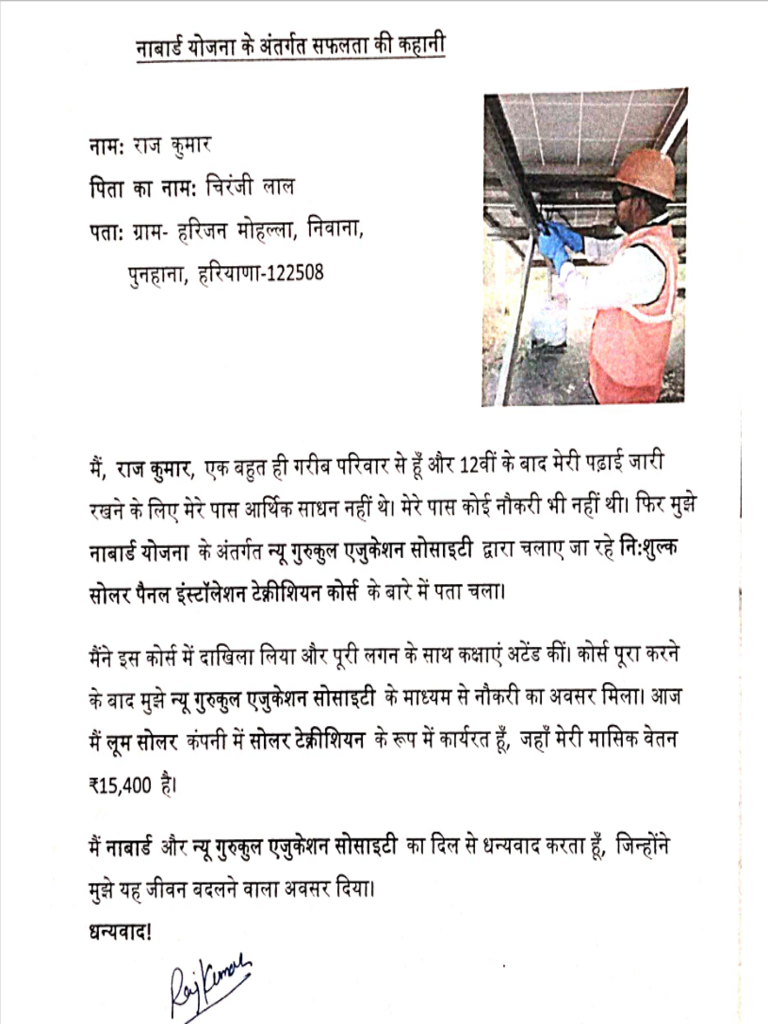 नाबार्ड योजना के अंतर्गत सफलता की कहानी
नाम: राज कुमार
पिता का नाम: चिरंजी लाल
पता: ग्राम- हरिजन मोहल्ला, निवाना,
पुनहाना, हरियाणा-122508
मैं, राज कुमार, एक बहुत ही गरीब परिवार से हूँ और 12वीं के बाद मेरी पढ़ाई जारी
रखने के लिए मेरे पास आर्थिक साधन नहीं थे। मेरे पास कोई नौकरी भी नहीं थी। फिर मुझे
नाबार्ड योजना के अंतर्गत न्यू गुरुकुल एजुकेशन सोसाइटी द्वारा चलाए जा रहे नि:शुल्क
सोलर पैनल इंस्टॉलेशन टेक्नीशियन कोर्स के बारे में पता चला।
मैंने इस कोर्स में दाखिला लिया और पूरी लगन के साथ कक्षाएं अटेंड कीं। कोर्स पूरा करने
के बाद मुझे न्यू गुरुकुल एजुकेशन सोसाइटी के माध्यम से नौकरी का अवसर मिला। आज
मैं लूम सोलर कंपनी में सोलर टेक्नीशियन के रूप में कार्यरत हूँ, जहाँ मेरी मासिक वेतन
₹15,400 है।
मैं नाबार्ड और न्यू गुरुकुल एजुकेशन सोसाइटी का दिल से धन्यवाद करता हूँ, जिन्होंने
मुझे यह जीवन बदलने वाला अवसर दिया।
धन्यवाद!
Raj Kumar